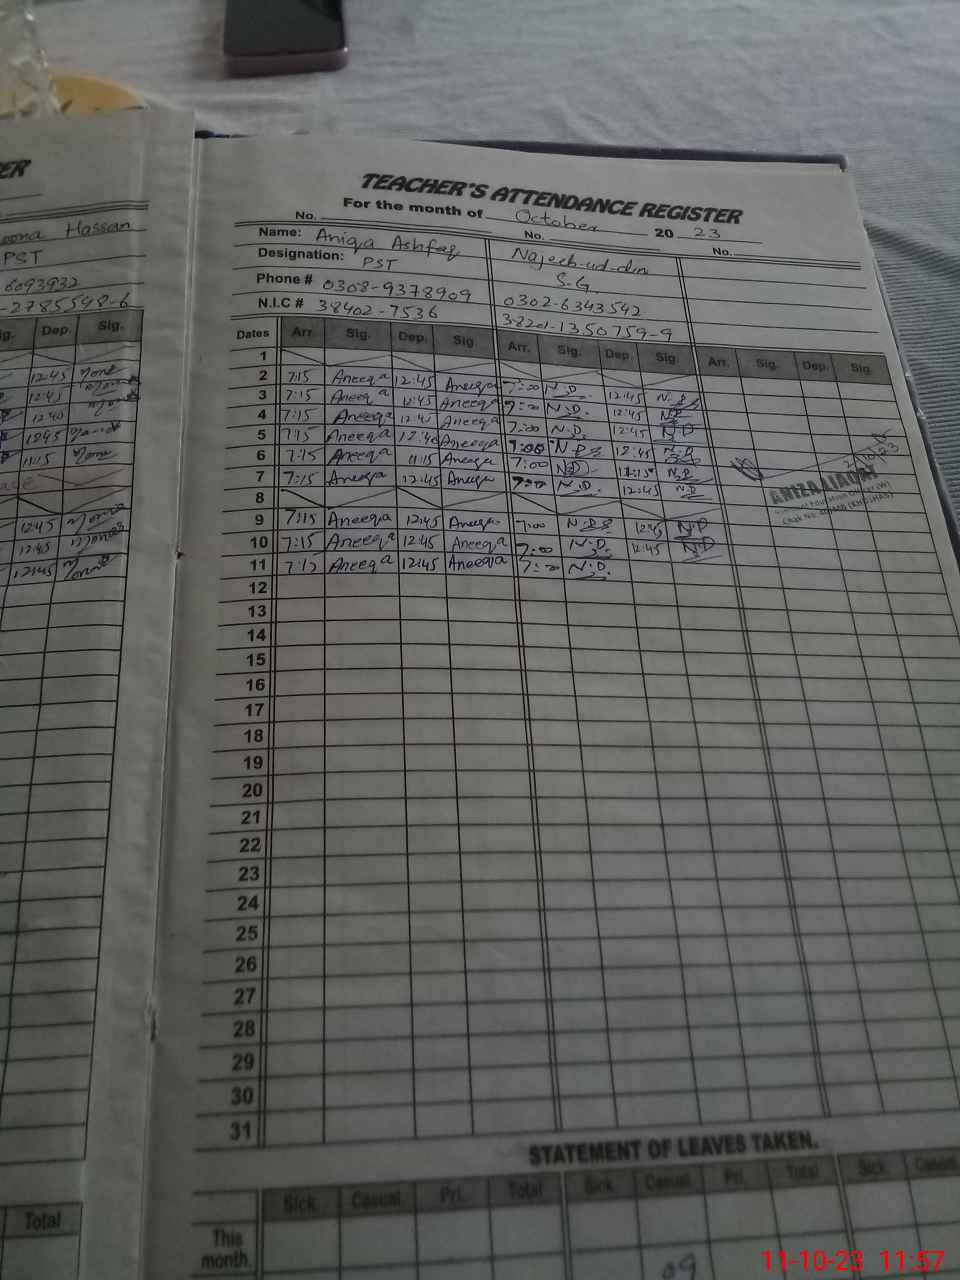 ER
oona Hassan
PST
6093932
-2785548-6
ig. Dep. Sig.
12:45
12:45
12:40
1245
11:15
12:45
12:45
12:45
Total
TEACHER'S ATTENDANCE REGISTER
For the month of October 20 23
No. No. No.
Name: Aniqa Ashfaq Najeeb-ud-din
Designation: PST S.G.
Phone # 0308-9378909 0302-6343542
N.I.C # 38402-7536 38201-1350759-9
Dates Arr. Sig. Dep. Sig. Arr. Sig. Dep. Sig. Arr. Sig. Dep. Sig.
1
2 7:15 Aneeqa 12:45 Aneeqa 7:00 N.D. 12:45 N.D
3 7:15 Aneeqa 12:45 Aneeqa 7:00 N.D. 12:45 N.D
4 7:15 Aneeqa 12:45 Aneeqa 7:00 N.D. 12:45 N.D
5 7:15 Aneeqa 12:40 Aneeqa 7:00 N.D 12:45 N.D
6 7:15 Aneeqa 11:15 Aneeqa 7:00 N.D 11:15 N.D
7 7:15 Aneeqa 12:45 Aneeqa 7:00 N.D. 12:45 N.D
8
9 7:15 Aneeqa 12:45 Aneeqa 7:00 N.D 12:45 N.D
10 7:15 Aneeqa 12:45 Aneeqa 7:00 N.D. 12:45 N.D
11 7:15 Aneeqa 12:45 Aneeqa 7:00 N.D.
12
13
14
15
16
17
18
19
20
21
22
23
24
25
26
27
28
29
30
31
ANIZA LIAQAT
STATEMENT OF LEAVES TAKEN.
Sick. Casual. Pri. Total Sick. Casual. Pri. Total Sick. Casual.
This
month. 09
11-10-23 11:57